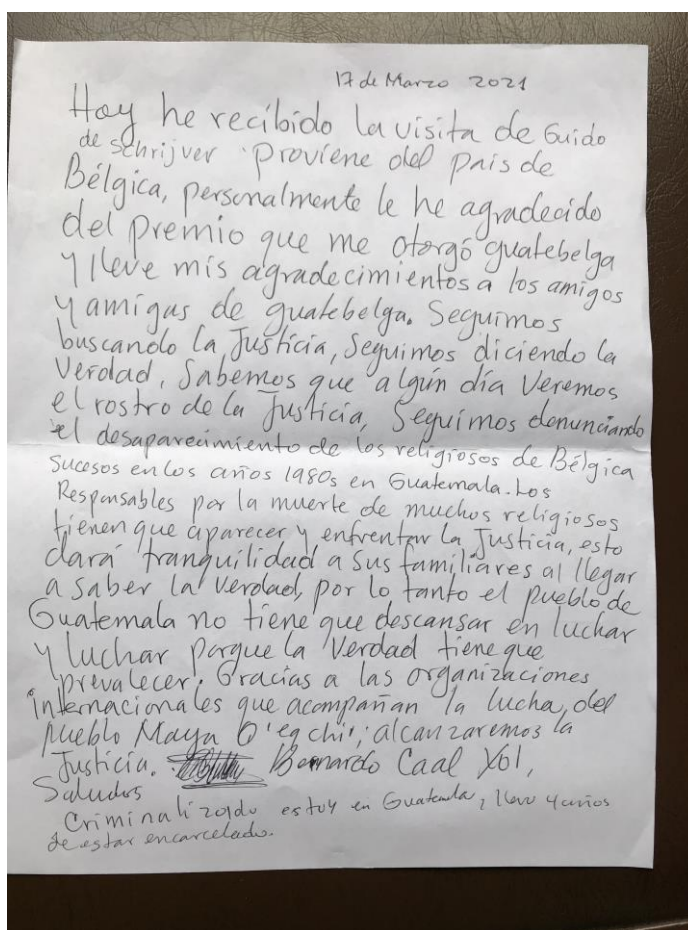 17 de Marzo 2021
Hoy he recibido la visita de Guido
de Schrijver. Proviene del país de
Bélgica, personalmente le he agradecido
del premio que me otorgó guatebelga
y lleve mis agradecimientos a los amigos
y amigas de guatebelga. Seguimos
buscando la Justicia, Seguimos diciendo la
Verdad, Sabemos que algún día Veremos
el rostro de la Justicia, Seguimos denunciando
el desaparecimiento de los religiosos de Bélgica
Sucesos en los años 1980s en Guatemala. Los
Responsables por la muerte de muchos religiosos
tienen que aparecer y enfrentar la Justicia, esto
dará tranquilidad a sus familiares al llegar
a saber la verdad, por lo tanto el pueblo de
Guatemala no tiene que descansar en luchar
y luchar porque la Verdad tiene que
prevalecer. Gracias a las organizaciones
internacionales que acompañan la lucha del
pueblo Maya Q'eqchi'; alcanzaremos la
Justicia. Bernardo Caal Xol,
Saludos
Criminalizado estoy en Guatemala, llevo 4 años
de estar encarcelado.